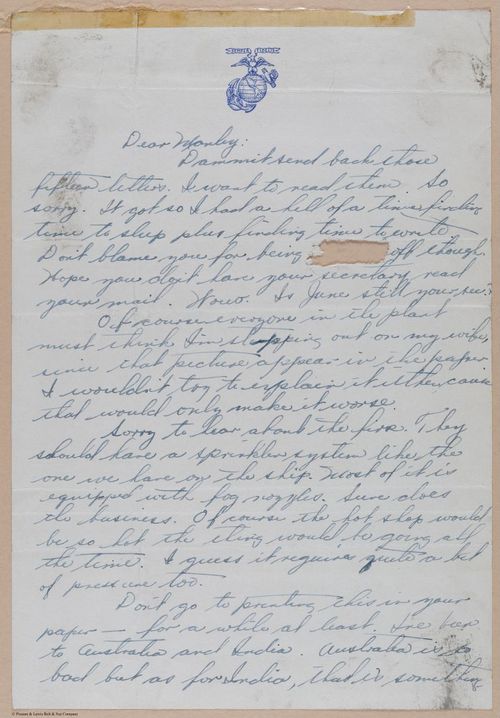 Dear Manley:
Dammit send back those
fifteen letters. I want to read them. So
sorry. It got so I had a hell of a time finding
time to sleep plus finding time to write.
Don't blame you for being off though.
Hope you didn't have your secretary read
your mail. Wow. Is June still your sec?
Of course everyone in the plant
must think I'm stepping out on my wife,
since that picture appear in the paper
I wouldn't try to explain it either, cause
that would only make it worse.
Sorry to hear about the fire. They
should have a sprinkler system like the
one we have on the ship. Most of it is
equipped with fog nozzles. Sure does
the business. Of course the hot shop would
be so hot the thing would be going all
the time. I guess it requires quite a bit
of pressure too.
Don't go to printing this in your
paper — for a while at least. I've been
to Australia and India. Australia is
bad but as for India, that is something
© Pioneer & Lewis Bolt & Nut Company